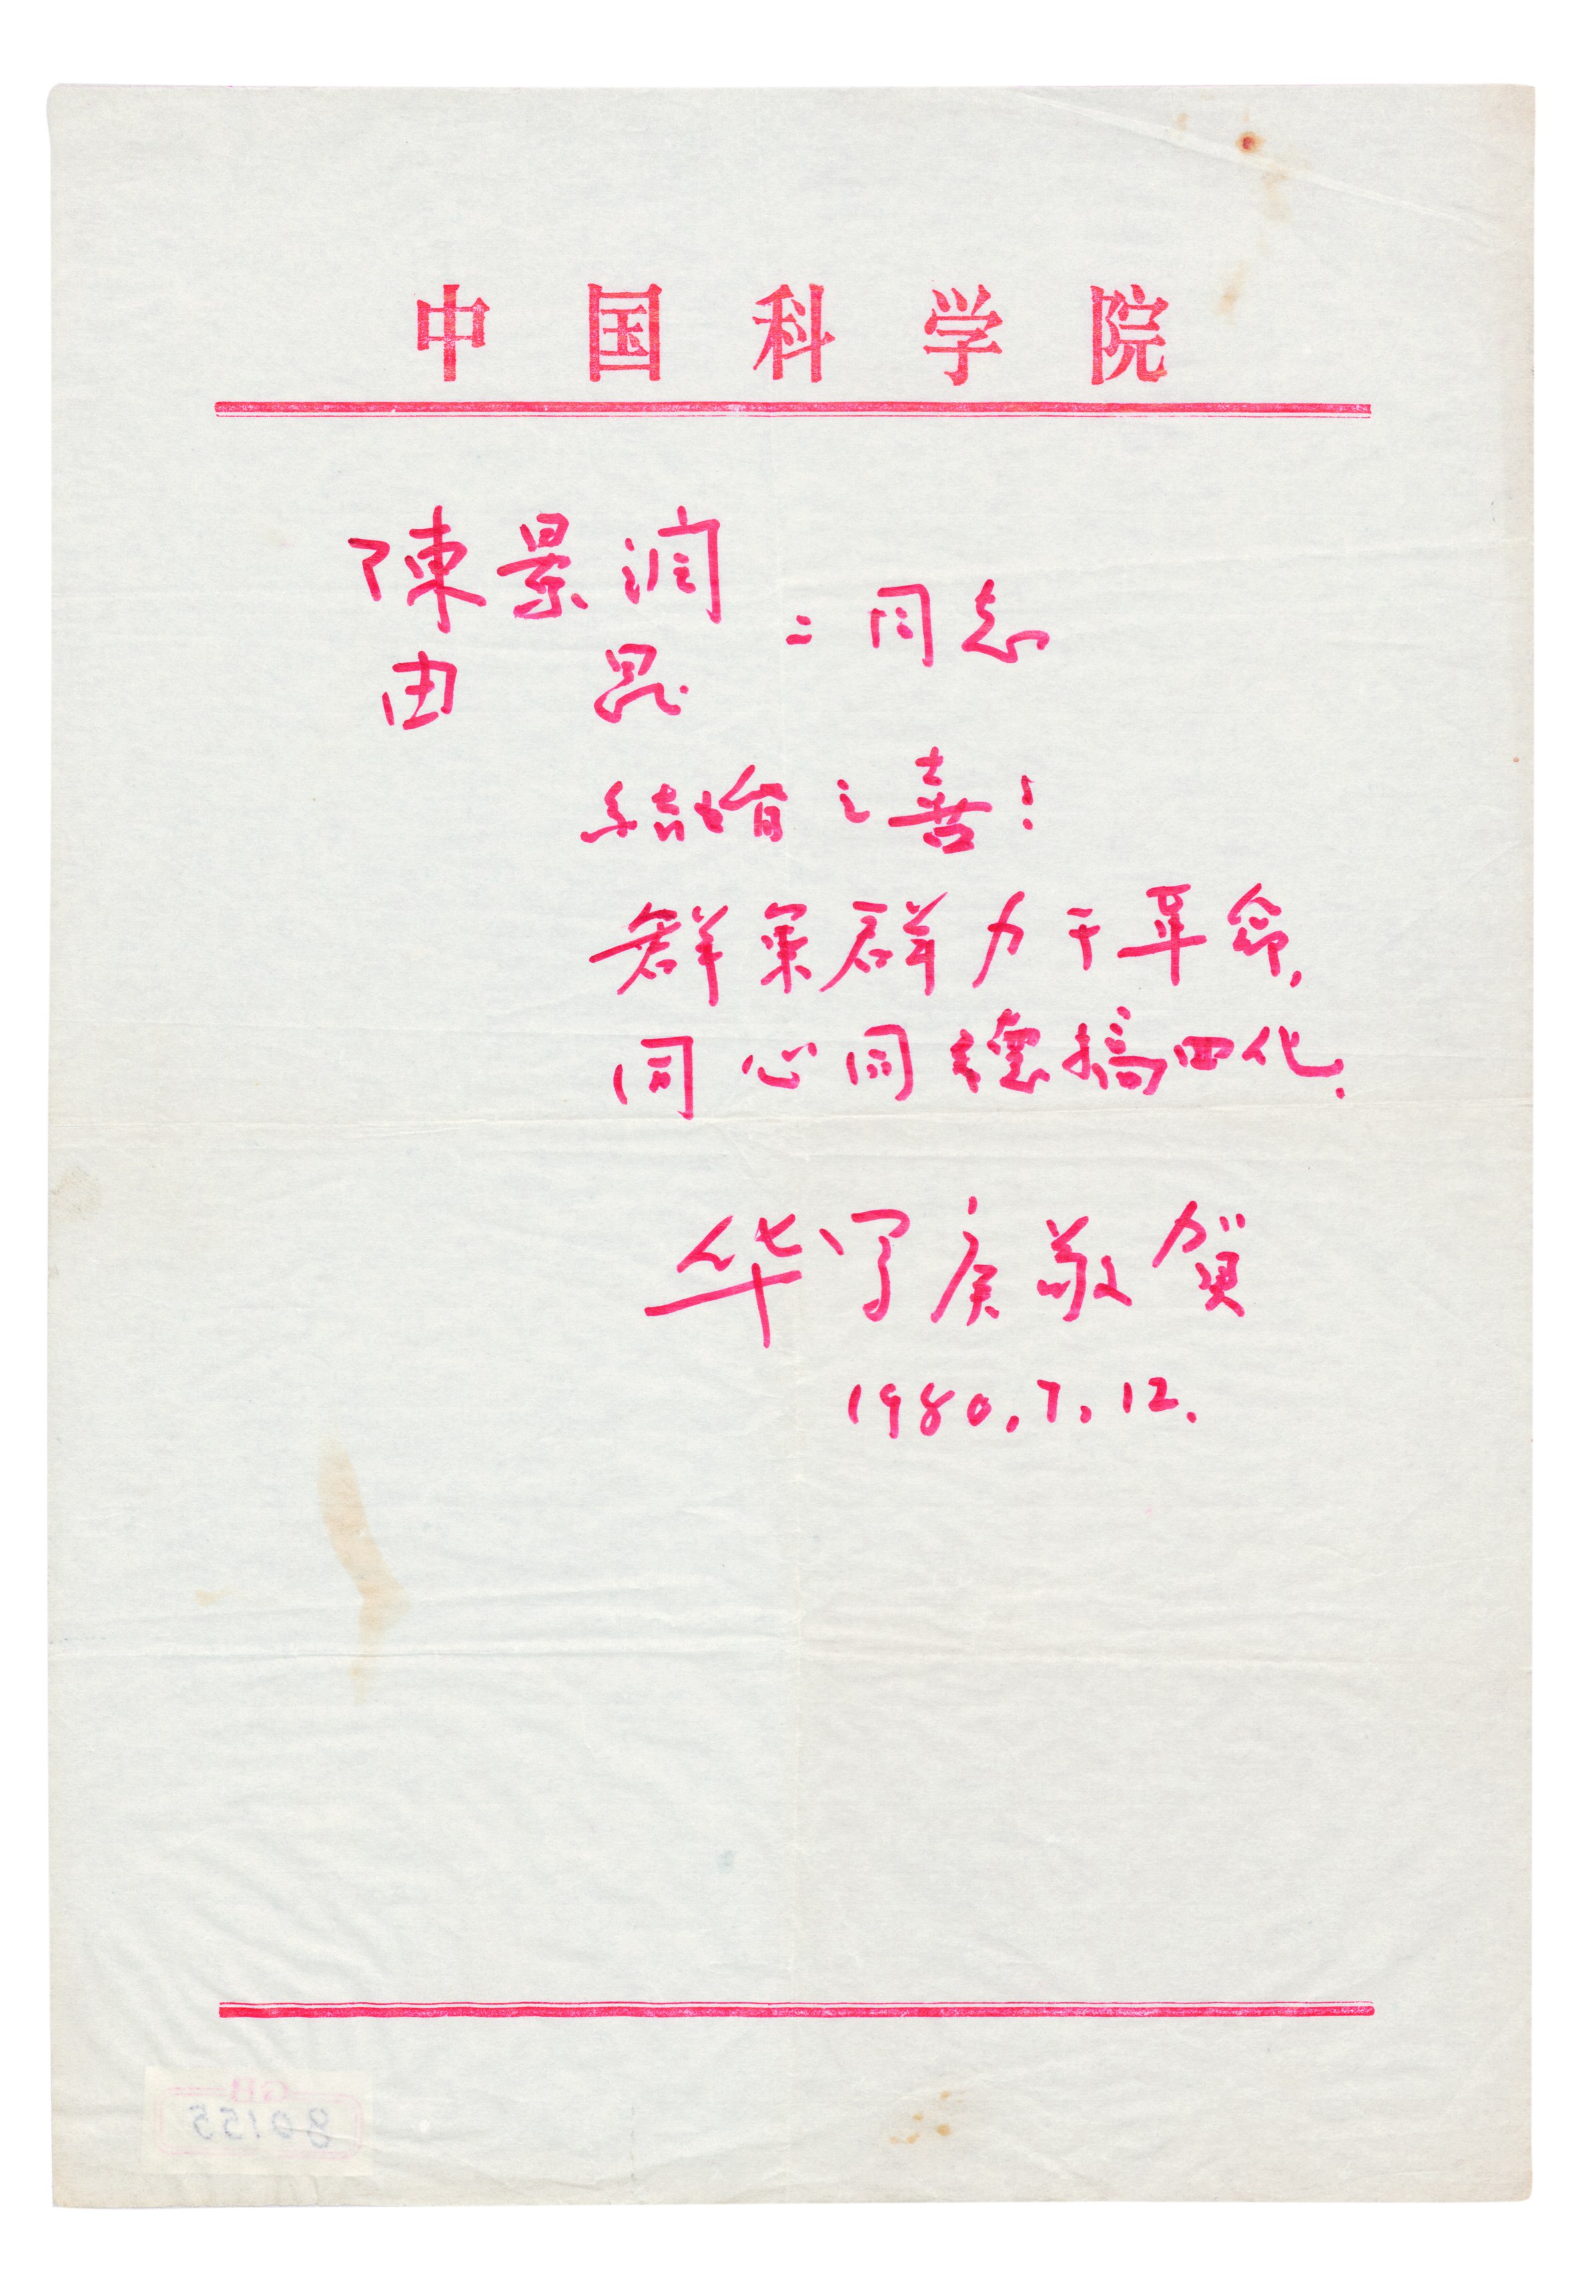 中国科学院
陳景润
由 昆
二同志
结婚之喜!
群策群力干革命,
同心同德搞四化.
华罗庚敬贺
1980.7.12.
GH
80155